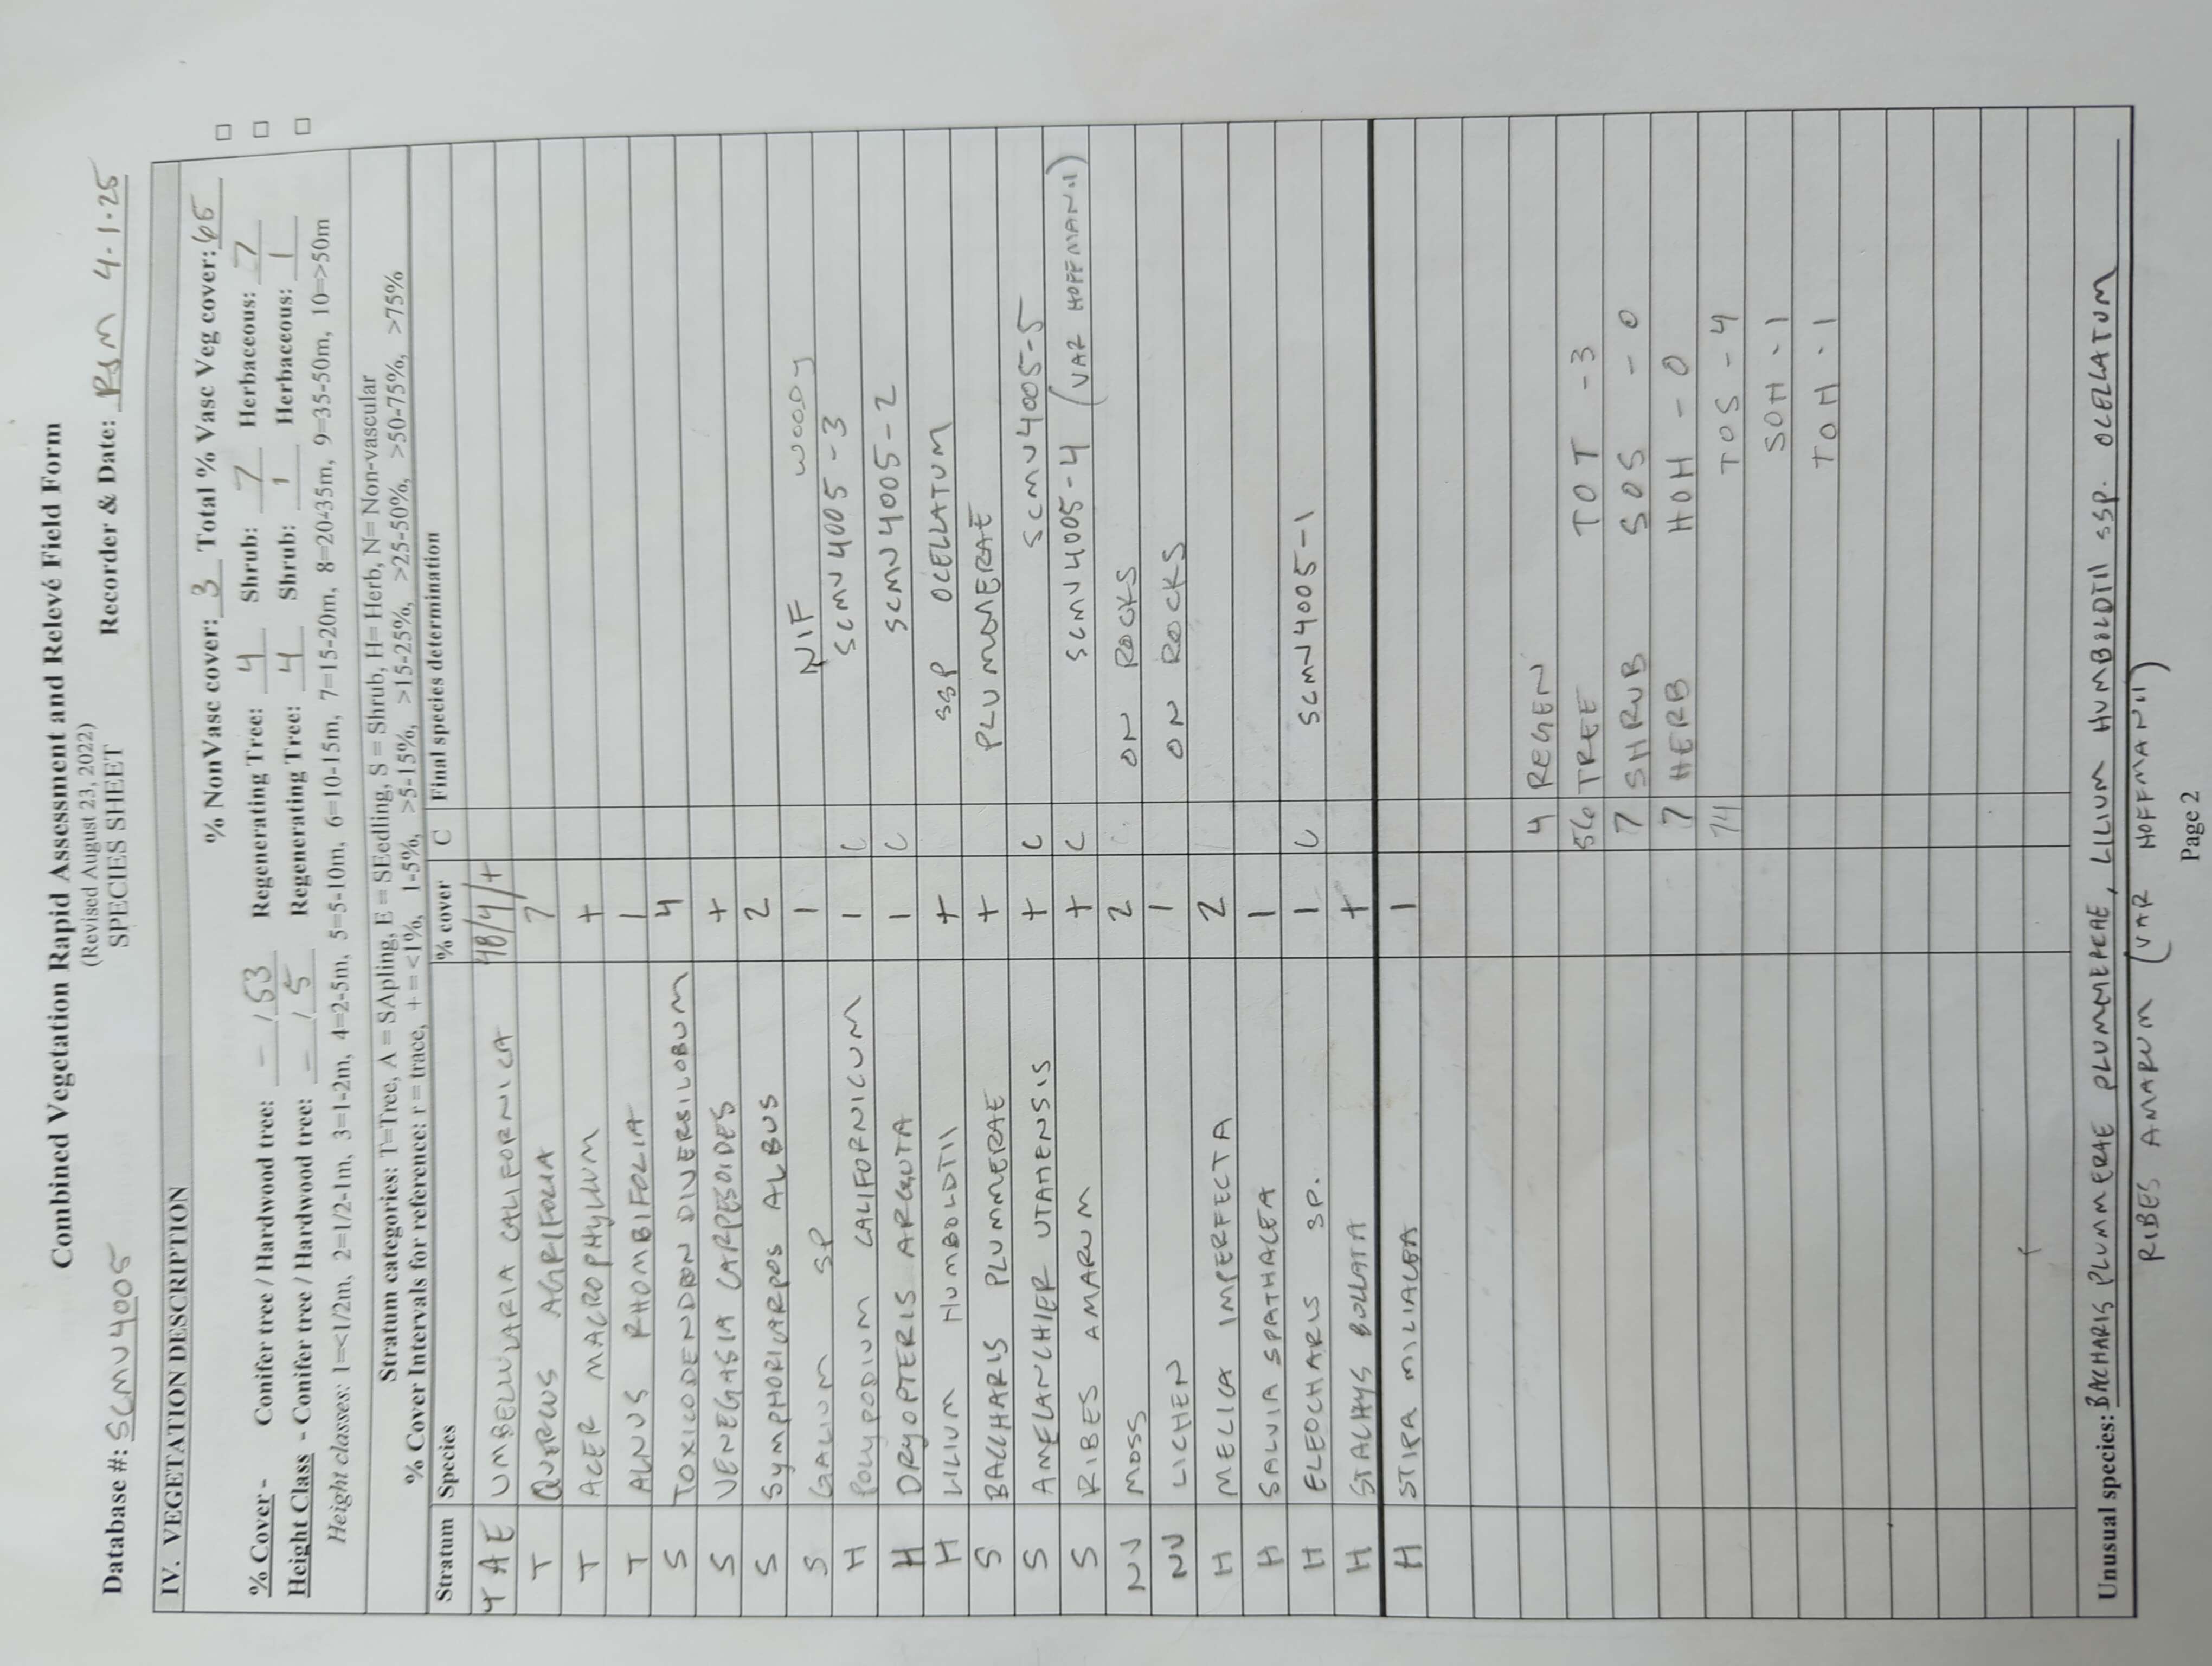 Combined Vegetation Rapid Assessment and Relevé Field Form
(Revised August 23, 2022)
SPECIES SHEET
Database #: SCMV4005 Recorder & Date: RSM 4.1.25
IV. VEGETATION DESCRIPTION
% NonVasc cover: 3 Total % Vasc Veg cover: 65 □
% Cover - Conifer tree / Hardwood tree: - / 53 Regenerating Tree: 4 Shrub: 7 Herbaceous: 7 □
Height Class - Conifer tree / Hardwood tree: - / 5 Regenerating Tree: 4 Shrub: 1 Herbaceous: 1 □
Height classes: 1=<1/2m, 2=1/2-1m, 3=1-2m, 4=2-5m, 5=5-10m, 6=10-15m, 7=15-20m, 8=20-35m, 9=35-50m, 10=>50m
Stratum categories: T=Tree, A = SApling, E = SEedling, S = Shrub, H= Herb, N= Non-vascular
% Cover Intervals for reference: r = trace, + = <1%, 1-5%, >5-15%, >15-25%, >25-50%, >50-75%, >75%
Stratum Species % cover C Final species determination
TAE UMBELLULARIA CALIFORNICA 48/4/+
T QUERCUS AGRIFOLIA 7
T ACER MACROPHYLLUM +
T ALNUS RHOMBIFOLIA 1
S TOXICODENDRON DIVERSILOBUM 4
S VENEGASIA CARPESOIDES +
S SYMPHORICARPOS ALBUS 2
S GALIUM SP 1 NIF WOODY
H POLYPODIUM CALIFORNICUM 1 C SCMV4005-3
H DRYOPTERIS ARGUTA 1 C SCMV4005-2
H LILIUM HUMBOLDTII + SSP OCELLATUM
S BACCHARIS PLUMMERAE + PLUMMERAE
S AMELANCHIER UTAHENSIS + C SCMV4005-5
S RIBES AMARUM + C SCMV4005-4 (VAR HOFFMANII)
NV MOSS 2 ON ROCKS
NV LICHEN 1 ON ROCKS
H MELICA IMPERFECTA 2
H SALVIA SPATHACEA 1
H ELEOCHARIS SP. 1 C SCMV4005-1
H STACHYS BULLATA +
H STIPA MILIACEA 1
4 REGEN
56 TREE TOT - 3
7 SHRUB SOS - 0
7 HERB HOH - 0
74 TOS - 4
SOH - 1
TOH - 1
Unusual species: BACCHARIS PLUMMERAE PLUMMERAE, LILIUM HUMBOLDTII SSP. OCELLATUM
RIBES AMARUM (VAR HOFFMANII)
Page 2